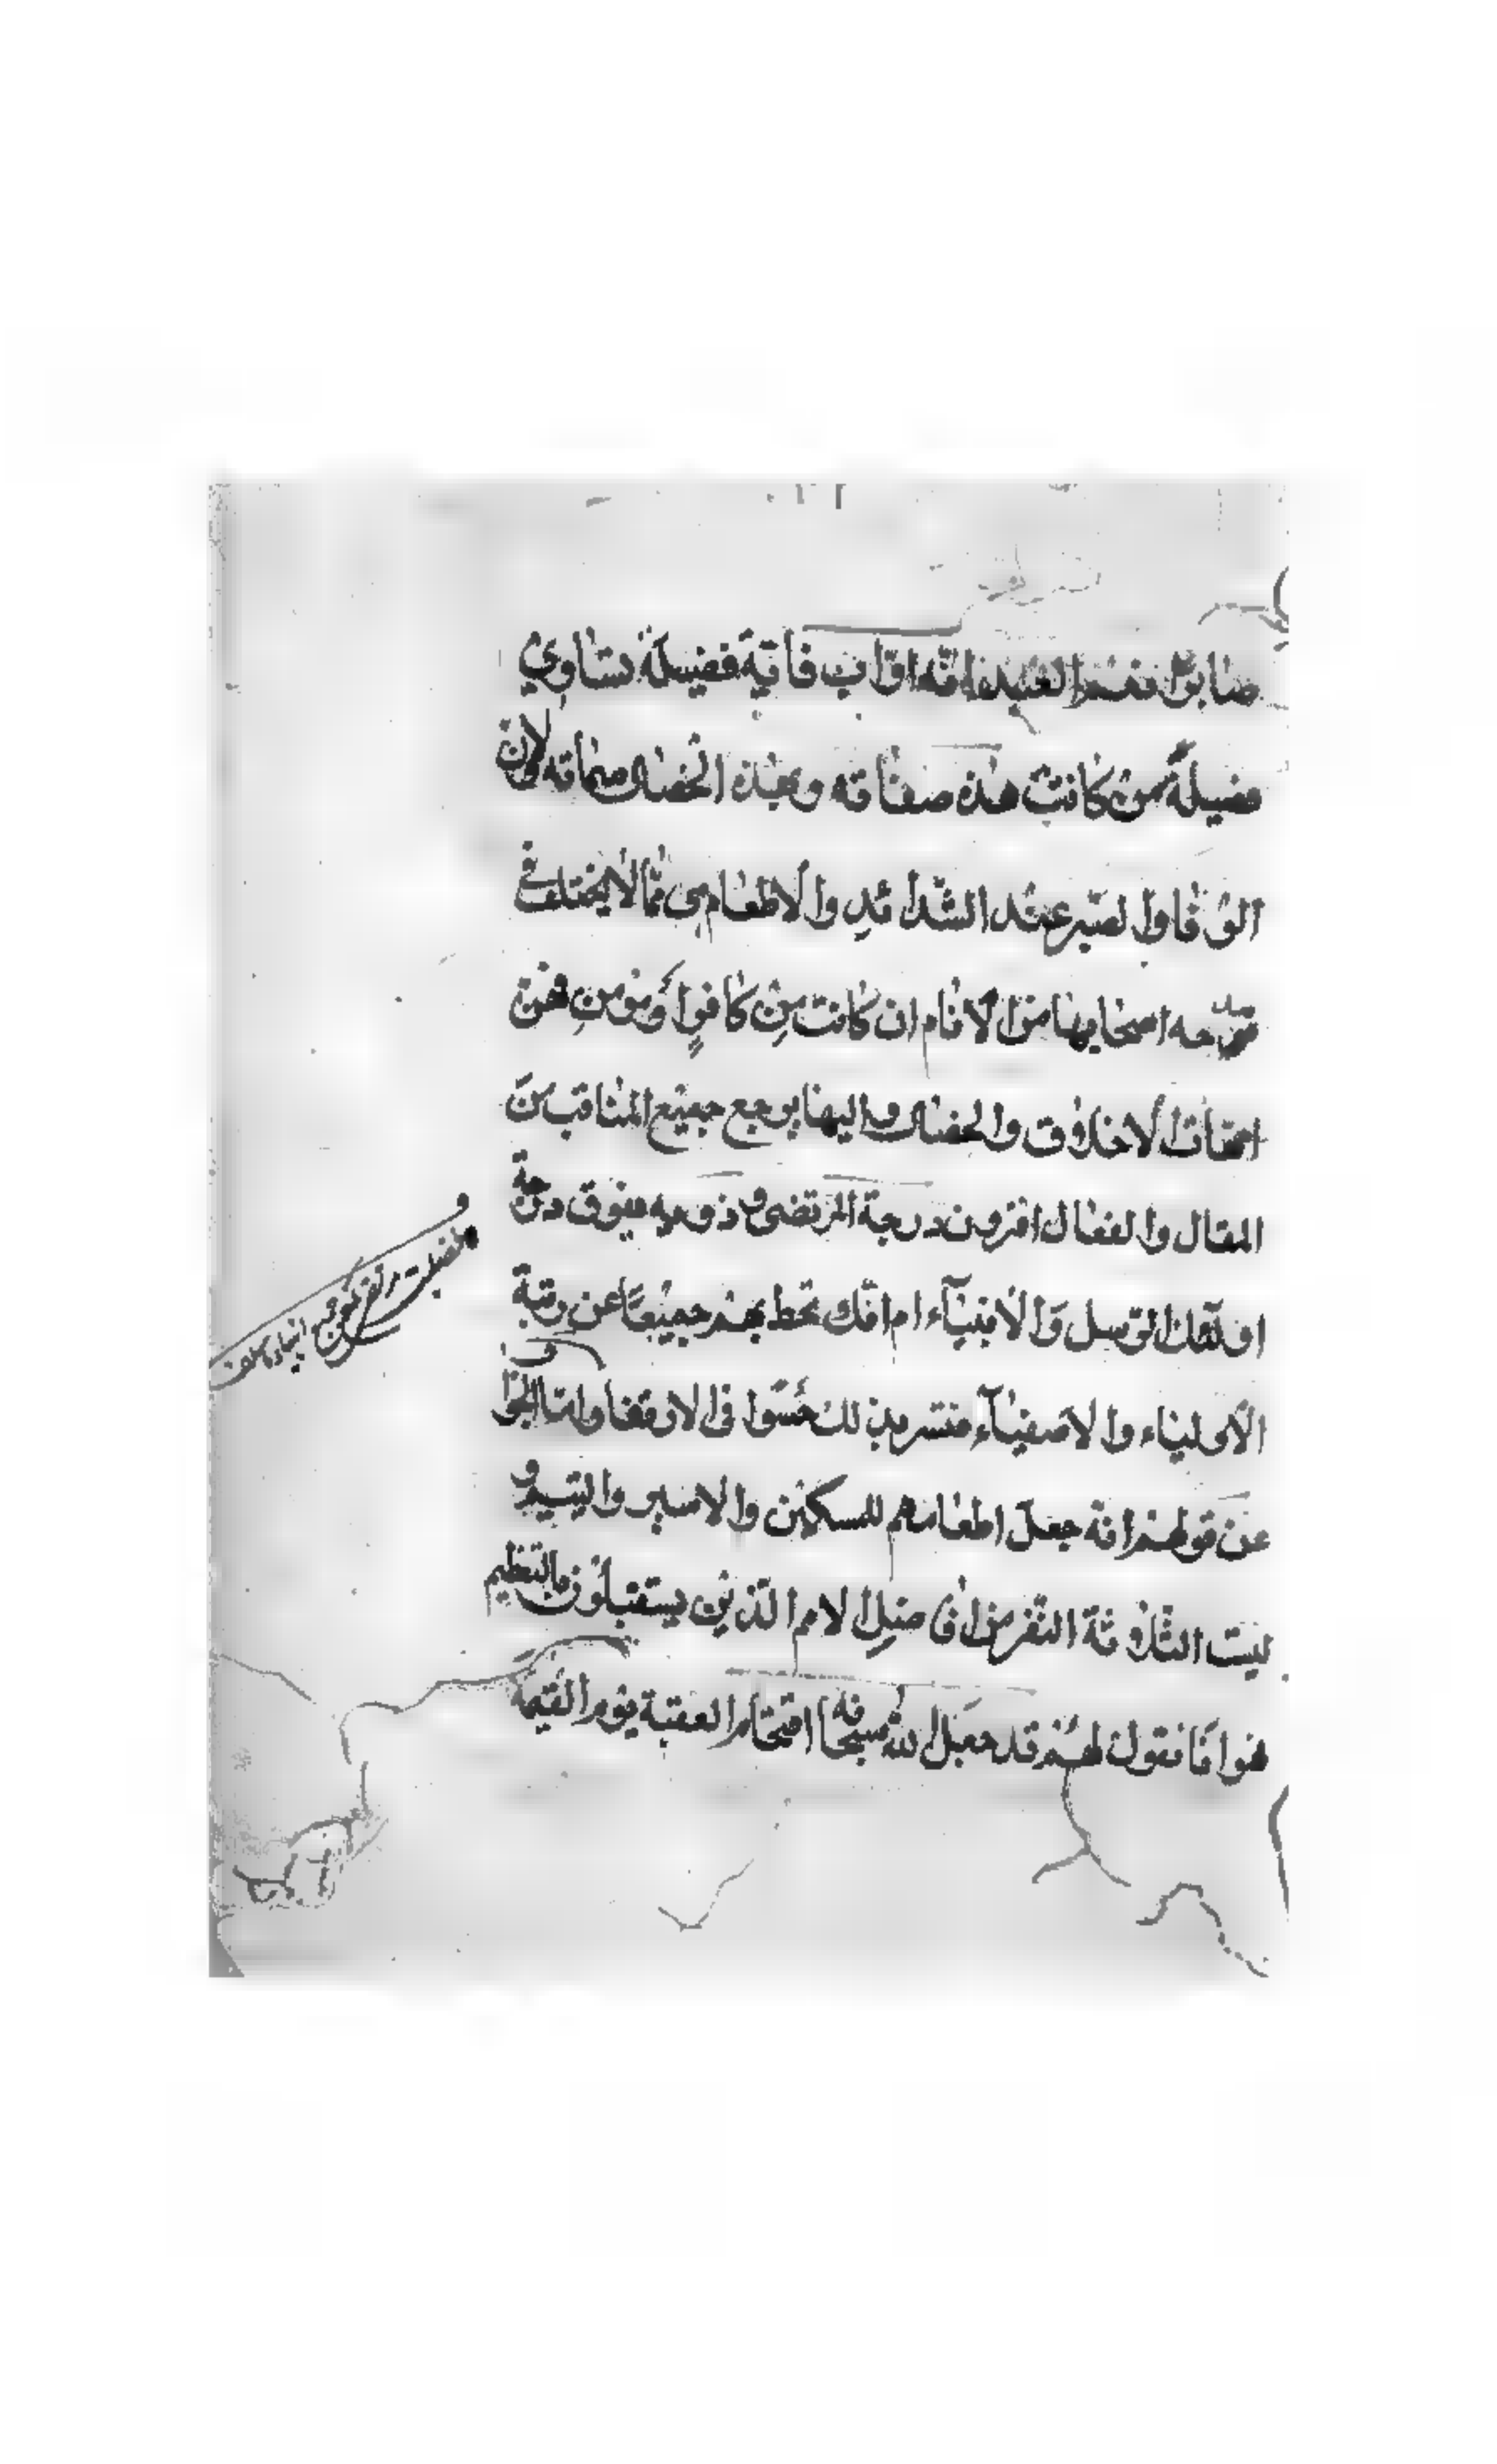 صابرًا نعم العبد انه اواب فاية فضيلة تساوي
فضيلة من كانت هذه صفاته وبهذه الخصال سماته لان
الوفا والصبر عند الشدائد والاطعام هي مما لا يختلف في
مدحه اصحابها من الانام ان كانت من كافر او مومن فهن
امهات الاخلاق والخصال واليها يرجع جميع المناقب من
المقال والفعال افترون درجة المرتضى وذويه يفوق درجة
اولئك الرسل والانبياء ام انك تحط بهم جميعًا عن رتبة
الاولياء والاصفياء
عن قولهم انه جعل اطعامهم للمسكين والاسير واليتيم و
ليت الثلاثة النفر من الامم الذين يستقبلون بالتعظيم
هو انا نقول لهم قد جعل الله سبحانه اقتحام العقبة يوم القيمة